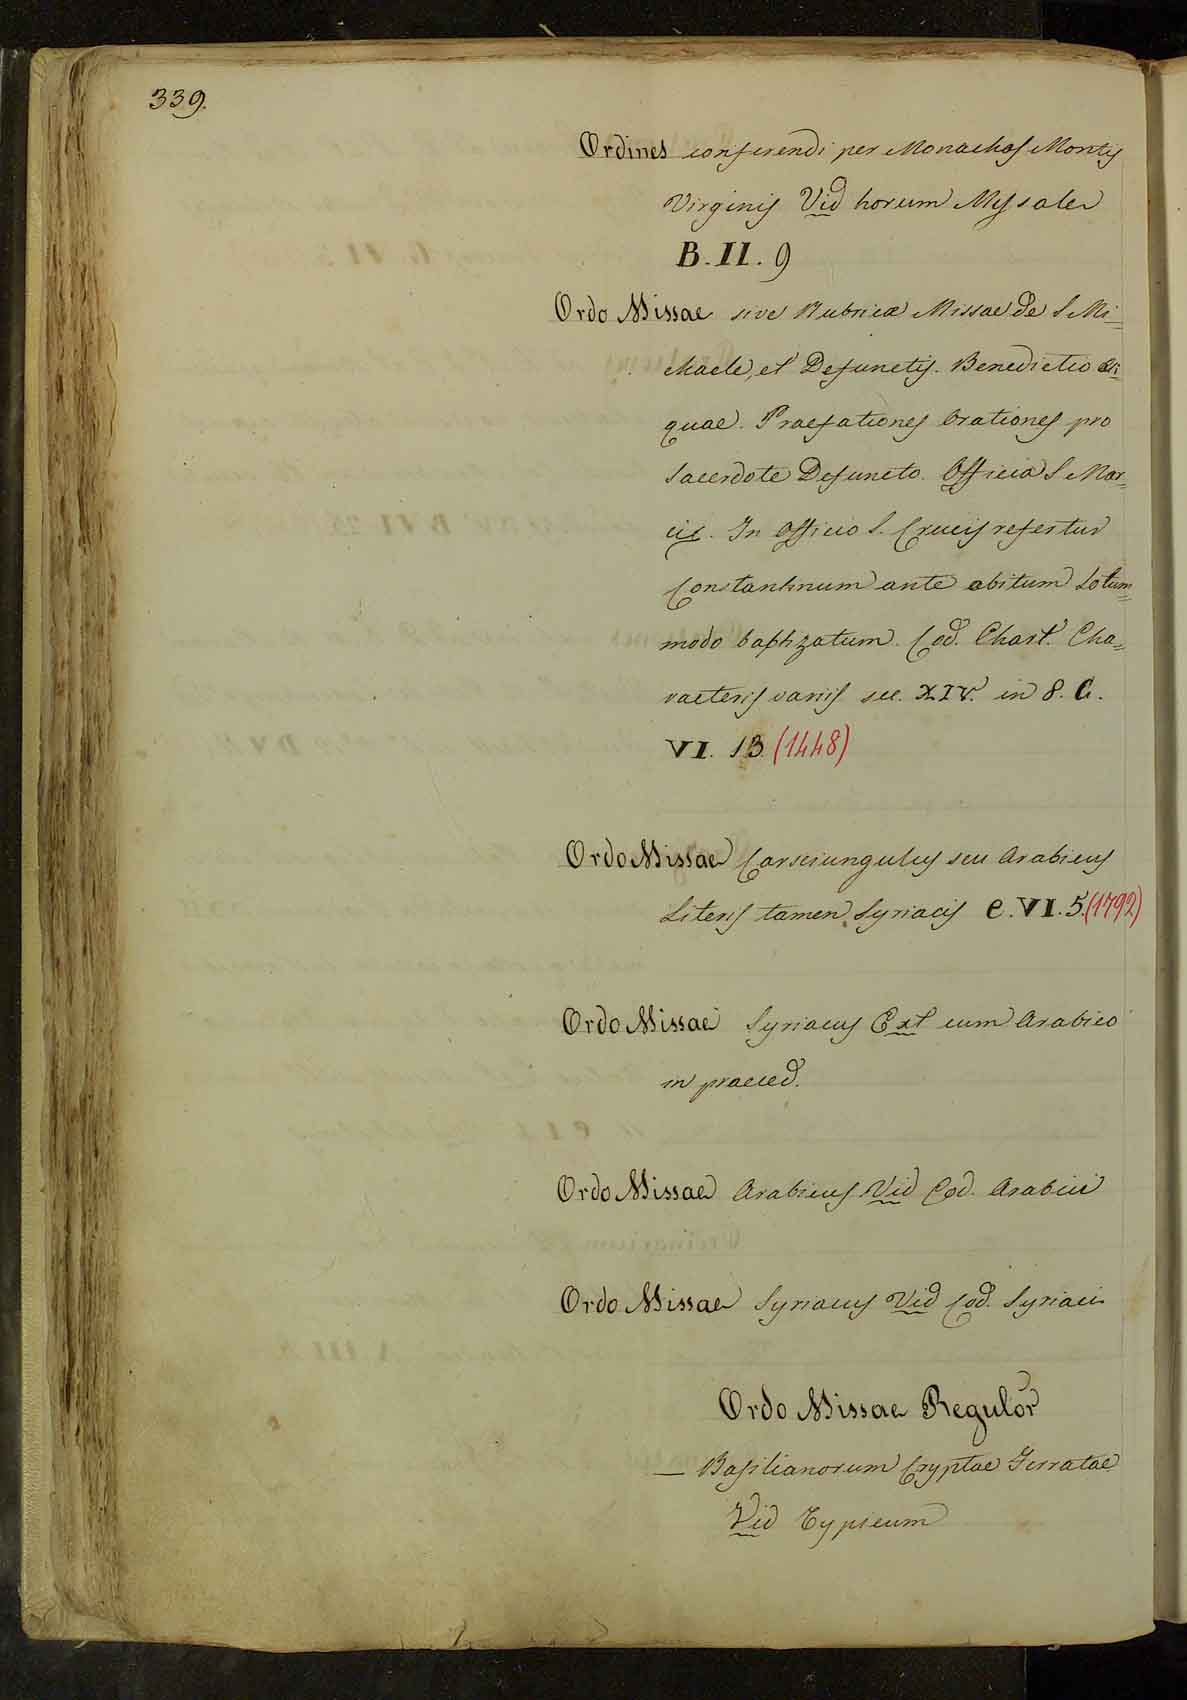 339.
Ordines conferendi per Monachos Montis
Virginis Vid horum Missale
B. II. 9
Ordo Missae sive Rubricæ Missae de S Mi=
chaele, et Defunctis. Benedictio
quae. Praefationes Orationes pro
Sacerdote Defuncto. Officia S Mar=
cis. In Officio S. Crucis refertur
Constantinum ante obitum Sotum=
modo baptizatum. Cod. Chart. Cha=
racteris variis sec. XIV. in 8. C.
VI. 13 (1448)
Ordo Missae Carsciungulus seu Arabicus
Literis tamen Syriacis C. VI. 5. (1792)
Ordo Missae Syriacus Ext cum Arabico
in praeced.
Ordo Missae Arabicus Vid Cod. Arabici
Ordo Missae Syriacus Vid Cod. Syriaci
Ordo Missae Regulor
— Basilianorum Cryptae Ferratae
Vid Typicum